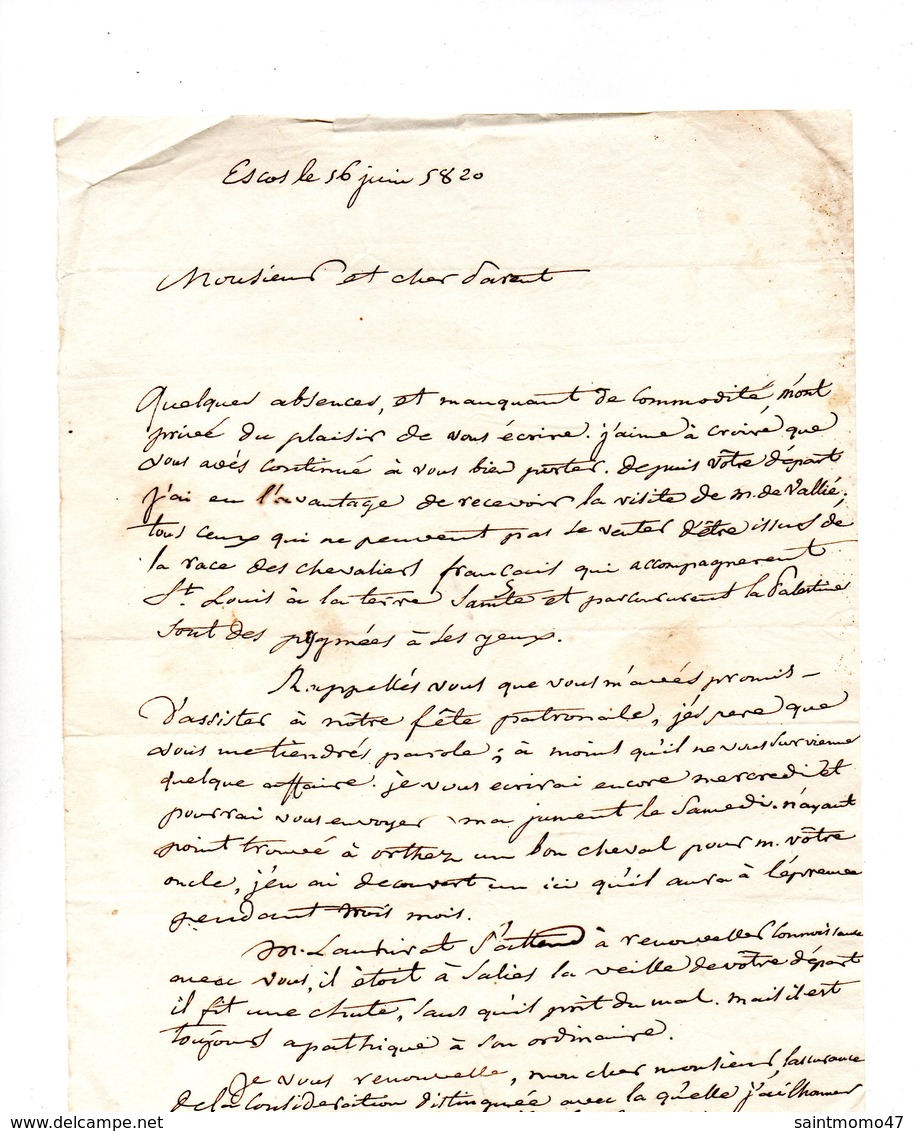 Escos le 16 juin 1820
Monsieur et cher Parent
Quelques absences, et manquant de commodité m'ont
privé du plaisir de vous écrire. j'aime à croire que
vous avés continué à vous bien porter. depuis vôtre départ
j'ai eu l'avantage de recevoir la visite de m. de Vallié;
tous ceux qui ne peuvent pas se venter d'être issus de
la race des chevaliers français qui accompagnerent
St. Louis à la terre Sainte et parcoururent la Palestine
sont des pygmées à ses yeux.
Rappellés vous que vous m'avés promis
d'assister à nôtre fête patronale, j'espere que
vous me tiendrés parole; à moins qu'il ne vous survienne
quelque affaire. je vous ecrirai encore mercredi et
pourrai vous envoyer ma jument le Samedi. n'ayant
point trouvé à orthez un bon cheval pour m. vôtre
oncle, j'en ai decouvert un ici qu'il aura à l'épreuve
pendant trois mois.
m. s'attend à renouveller connoissance
avec vous, il étoit à Salies la veille de vôtre départ
il fit une chute, sans qu'il prit du mal. mais il est
toujours apathique à son ordinaire.
Je vous renouvelle, mon cher monsieur, l'assurance
de la consideration distinguée avec la qu'elle j'ai l'honneur
saintmomo47